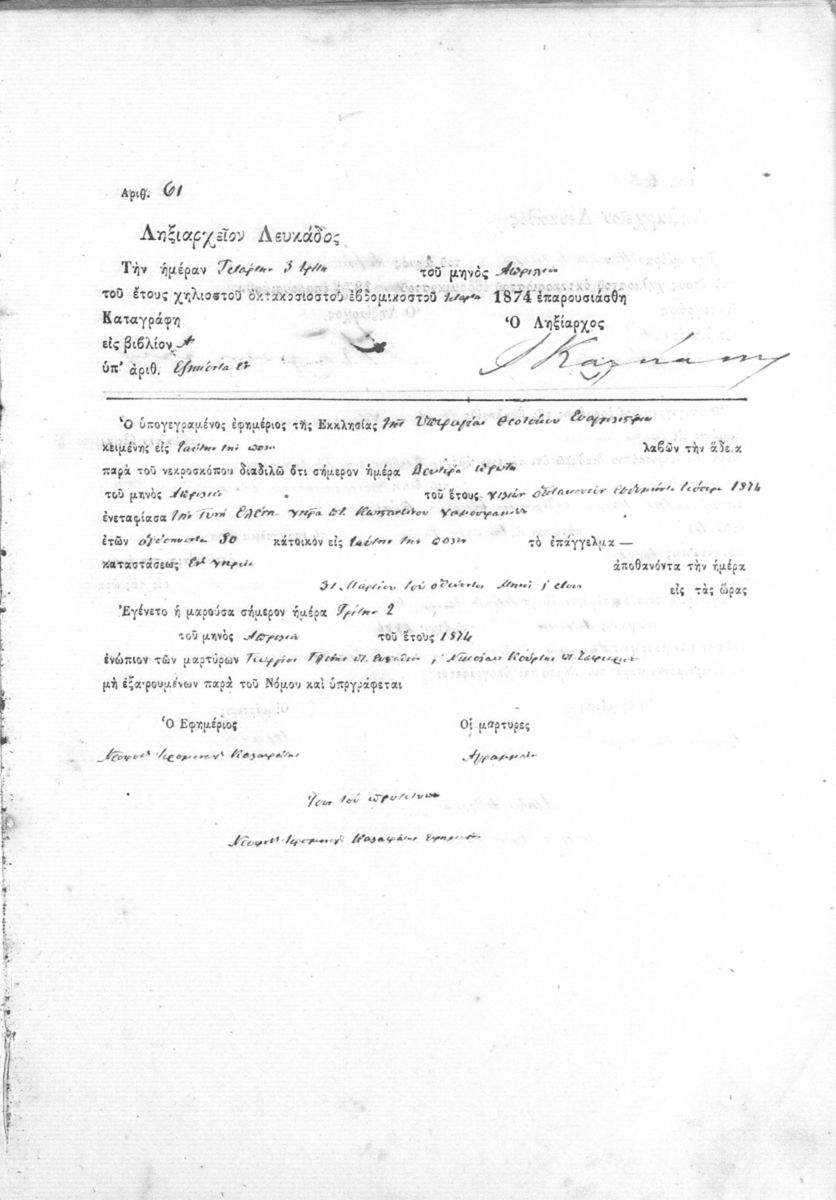 Αριθ. 61
Ληξιαρχεῖον Λευκάδος
Τὴν ἡμέραν Τετάρτην 3 τρίτη τοῦ μηνὸς Απριλίου
τοῦ ἔτους χηλιοστοῦ ὀκτακοσιοστοῦ ἑβδομικοστοῦ τετάρτου 1874 ἐπαρουσιάσθη
Καταγράφη Ὁ Ληξίαρχος
εἰς βιβλίον Α
ὑπ' ἀριθ. Εξηκόντα ἕν
Ὁ ὑπογεγραμένος ἐφημέριος τῆς Εκκλησίας τῆς Υπεραγίας Θεοτόκου Ευαγγελιστρίας
κειμένης εἰς ταύτην την πόλιν λαβῶν τὴν ἄδε.α
παρὰ τοῦ νεκροσκόπου διαδιλῶ ὅτι σήμερον ἡμέρα Δευτέρα πρώτη
τοῦ μηνὸς Απριλίου τοῦ ἔτους χιλίων οκτακοσίων εβδομήντα τέσσερα 1874
ἐνεταφίασα τὴν Ελένη χήρα
ἐτῶν κάτοικὸν εἰς ταύτην την πόλιν τὸ ἐπάγγελμα —
καταστάσεως ἐν χηρεία ἀποθανόντα τὴν ἡμέρα
31 Μαρτίου τοῦ μηνὸς ἔτους εἰς τὰς ὥρας
Ἐγένετο ἡ μαροῦσα σήμερον ἡμέρα Τρίτην 2
τοῦ μηνὸς Απριλίου τοῦ ἔτους 1874
ἐνώπιον τῶν μαρτύρων Γεωργίου Νικολάου
μὴ ἐξα.ρουμένων παρὰ τοῦ Νόμου καὶ ὑπργράφεται
Ὁ Εφημέριος Οἱ μαρτυρες
Καλαφάτης Αγράμματοι
Ίσον τοῦ πρωτοτύπου
Καλαφάτης Εφημέριος